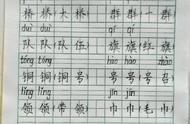 桥桥(大桥) 群群(一群
duì duì qí qí
队队(队伍) 旗旗(红旗
tóng tóng hào
铜铜(铜号) 号号(号召
lǐng lǐng jīn jīn
领领(带领) 巾巾(毛巾)